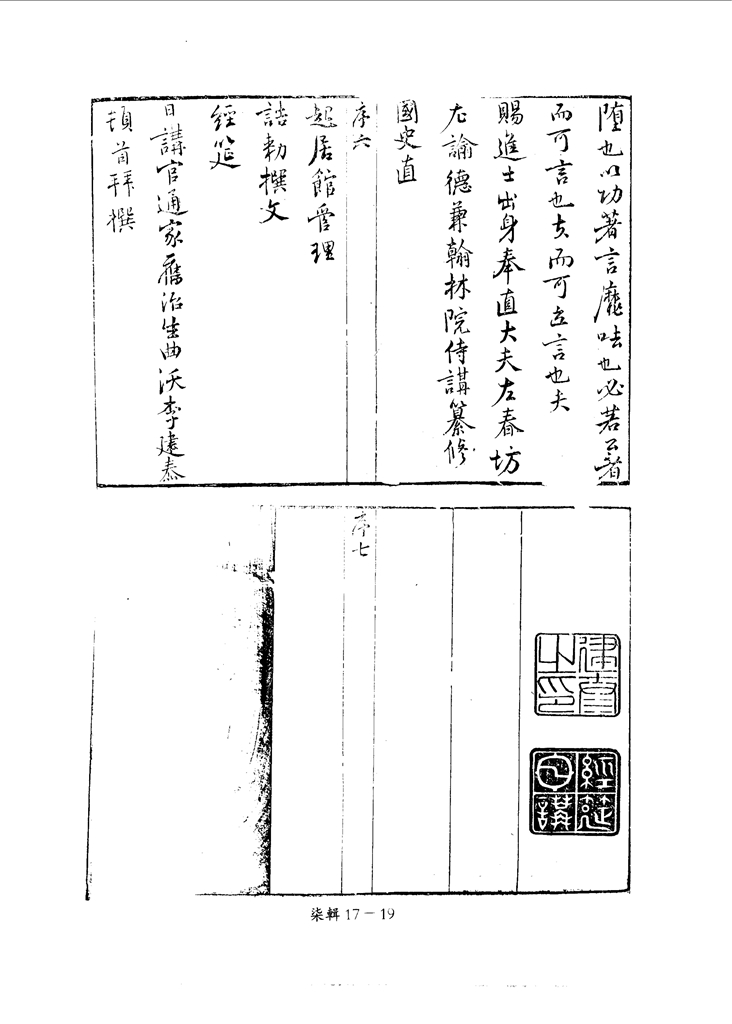 堕也以功著言靡呿也必若公著
而可言也夫而可立言也夫
賜進士出身奉直大夫左春坊
左諭德兼翰林院侍講纂修
國史直
序六
起居館管理
誥勅撰文
經筵
日講官通家舊治生曲沃李建泰
頓首拜撰
建泰之印
經筵日講
序七
柒輯 17－19